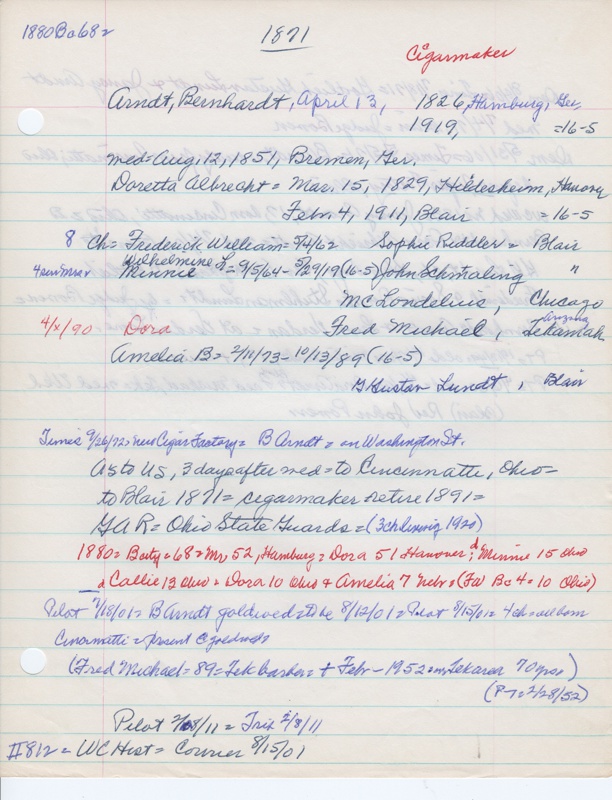 1880 Bat 68=
1871
Cigarmaker
Arndt, Bernhardt, April 13, 1826, Hamburg, Ger.
1919, =16-5
med= Aug, 12, 1851, Bremen, Ger.
Doretta Albrecht= Mar. 15, 1829, Hildesheim, Hanover
Febr. 4, 1911, Blair =16-5
8 Ch= Frederick William= 5/4/62 Sophie Riddler= Blair
Wilhelmine
4 surv Minnie = 9/5/64- 5/29/19 (16-5) John Schmaling "
McLondelius, Chicago
Arizona
4/x/90 - Dora Fred Michael, Tekamah
Amelia B= 2/11/73-10/13/89 (16-5)
G Gustav Lundt, Blair
Times 9/26/72= new Cigar Factory= B Arndt= on Washington St.
As to US, 3 days after med= to Cincinnatte, Ohio=
to Blair 1871= cigarmaker retire 1891=
GAR= Ohio State Guards= (3ch living 1920)
1880= 68= Mr 52, Hamburg= Dora 51 Hanover; Minnie 15 Ohio
Callie 13 Ohio= Dora 10 Ohio + Amelia 7 Nebr=
Pilot 7/18/01= B Arndt goldwed= to be 8/12/01= Pilot 8/15/01= 4ch= all born
Cincinnatti= present @ goldwed=
(Fred Michael= 89= Tek banker= + Febr- 1952= 70 yrs)
(P-T= 2/28/52)
Pilot 2/08/11= Trib 2/8/11
II 812= WC Hist= Courier 8/15/01